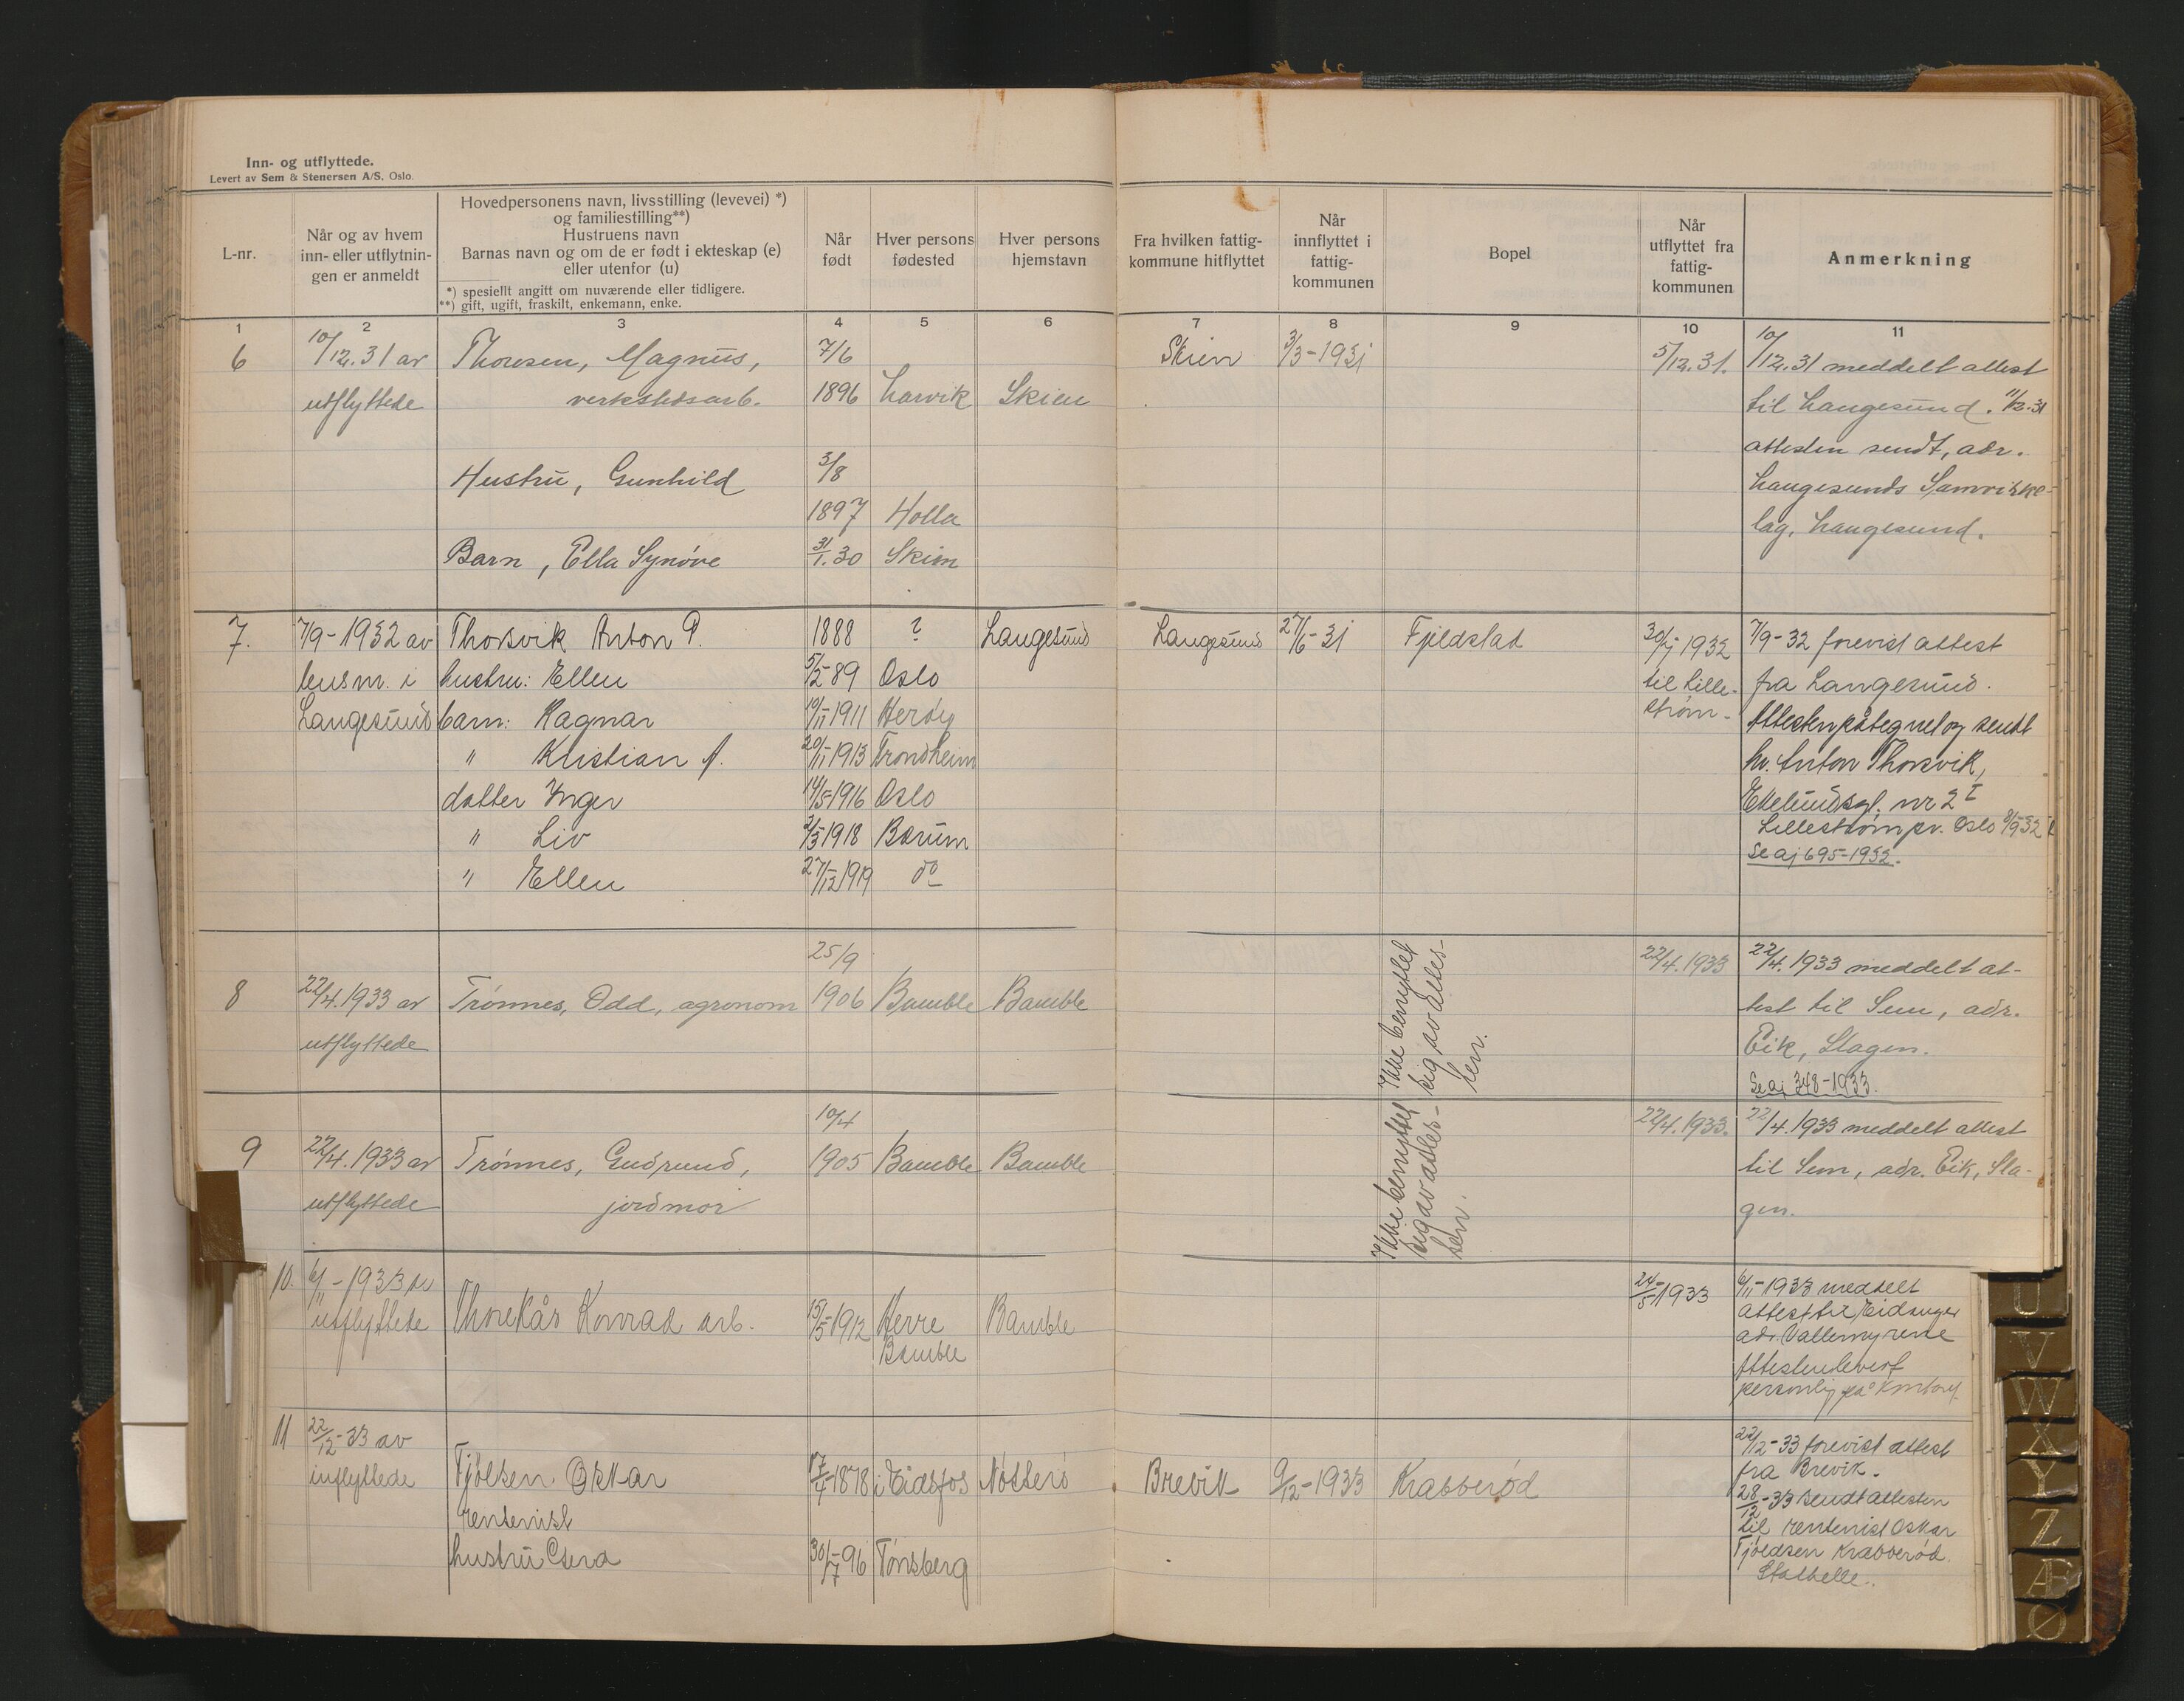 Inn- og utflyttede.
Levert av Sem & Stenersen A/S. Oslo.
L-nr.
Når og av hvem
inn- eller utflytnin-
gen er anmeldt
Hovedpersonens navn, livsstilling (levevei) *)
og familiestilling**)
Hustruens navn
Barnas navn og om de er født i ekteskap (e)
eller utenfor (u)
*) spesiellt angitt om nuværende eller tidligere.
**) gift, ugift, fraskilt, enkemann, enke.
Når
født
Hver persons
fødested
Hver persons
hjemstavn
Fra hvilken fattig-
kommune hitflyttet
Når
innflyttet i
fattig-
kommunen
Bopel
Når
utflyttet fra
fattig-
kommunen
Anmerkning
1 2 3 4 5 6 7 8 9 10 11
6 10/12.31 av Thorsen, Magnus, 7/6 Skien 3/3-1931 5/12.31. 10/12.31 meddelt attest
utflyttede verkstedsarb. 1896 Larvik Skien til Langesund. 11/12-31
attesten sendt, adr.
Hustru, Gunhild 3/8 Langesunds Samvirke-
1897 Holla lag, Langesund.
Barn, Ella Synøve 31/1.30 Skien
7. 7/9-1932 av Thorsvik Anton P. 1888 ? Langesund Langesund 27/6-31 Fjeldstad 30/7 1932 7/9-32 forevist attest
lensm. i hustru: Ellen 5/2-89 Oslo til Lille- fra Langesund.
Langesund barn: Ragnar 19/11-1911 Herøy strøm- Attesten påtegnet og sendt
" Kristian A. 20/11-1913 Trondheim hr. Anton Thorsvik,
datter Inger 14/5-1916 Oslo nr 2 I
" Liv 2/3 1918 Bærum Lillestrøm pr. Oslo 8/9-32
" Ellen 27/12 1919 do Se aj 695-1932.
25/9 22/4.1933 22/4.1933 meddelt at-
8 22/4.1933 av Trønnes, Odd, agronom 1906 Bamble Bamble test til Sem, adr.
utflyttede Eik, Slagen.
Se aj 348-1933.
Ikke benyttet
sig av attes-
ten.
10/4 22/4.1933. 22/4.1933 meddelt attest
9 22/4.1933 av Trønnes, Gudrund, 1905 Bamble Bamble til Sem, adr. Eik, Sla-
utflyttede jordmor gen.
Ikke benyttet
sig av attes-
ten.
10. 6/11-1933 av 24/5-1933 6/11-1933 meddelt
utflyttede Thorekås Konrad arb. 15/5-1912 Herre Bamble attest til Eidanger
Bamble adr Vallermyrene
Attesten levert
personlig på Kontoret
11 22/12-33 av 22/12-33 forevist attest
inflyttede Tjølsen Oskar 17/4-1878 i Eidsfos Nøtterø Brevik 9/12-1933 Krabberød fra Brevik.
rentenist 28/12-33 sendt attesten
til rentenist Oskar
hustru 30/7-96 Tønsberg Tjøldsen Krabberød
Stathelle.
U
V
W
X
Y
Z
Æ
Ø